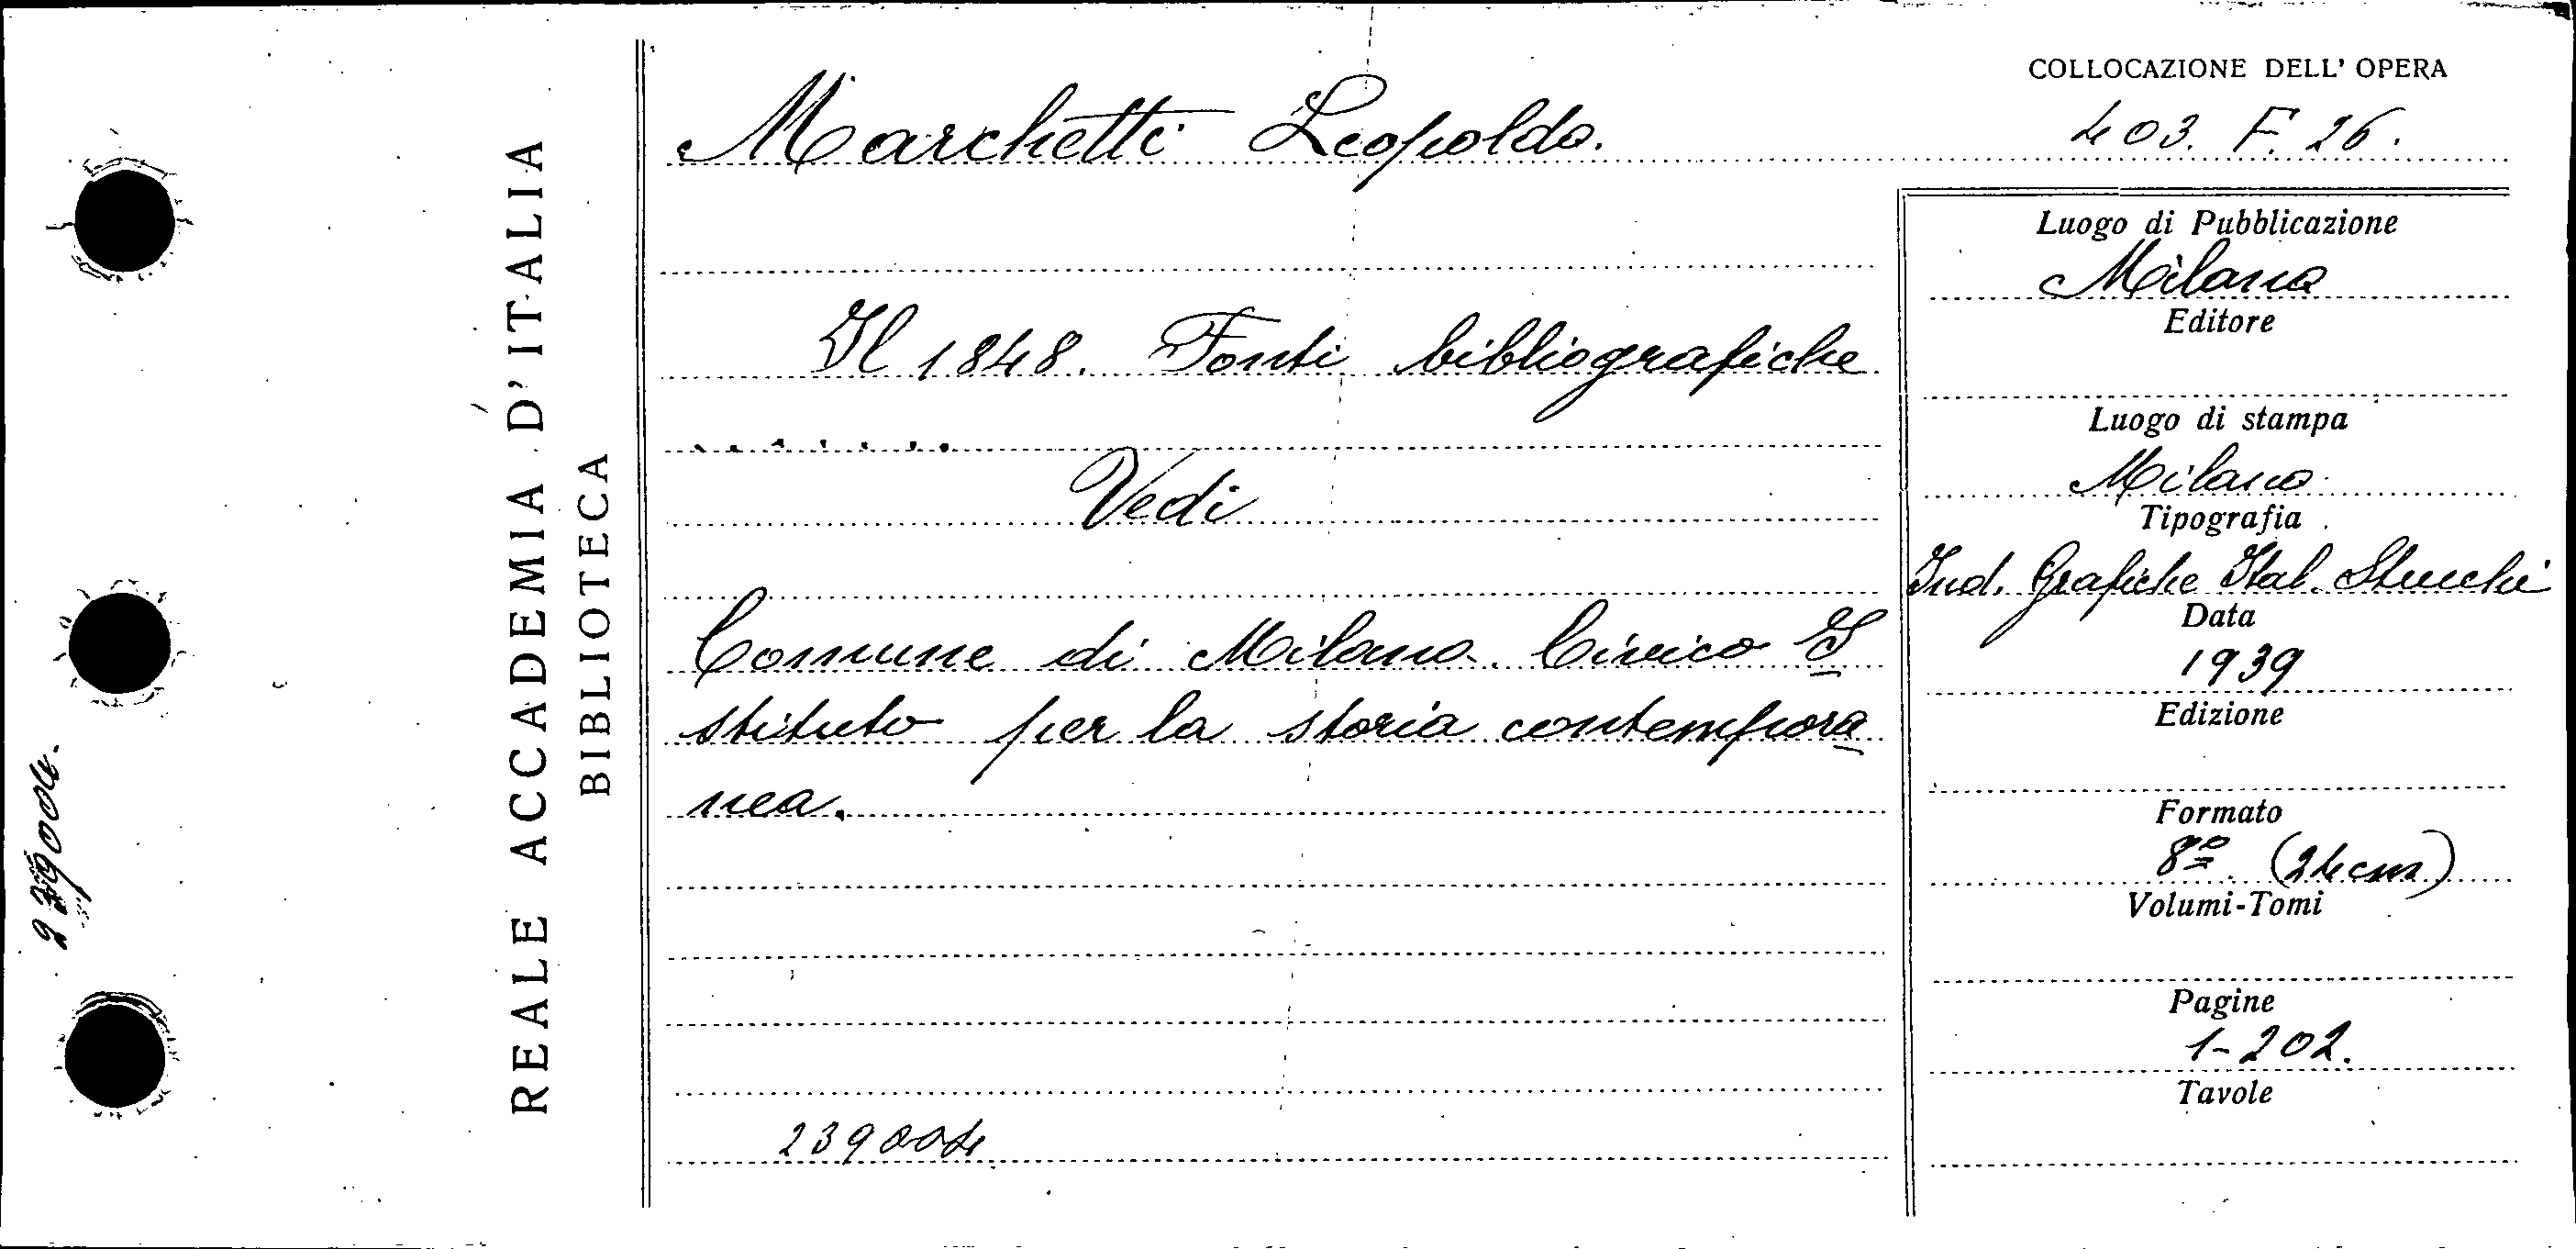 COLLOCAZIONE DELL' OPERA
403. F. 26.
Marchetti Leopoldo.
Il 1848. Fonti bibliografiche
.......
Vedi
Comune di Milano. Civico I
stituto per la storia contempora
nea.
239004
Luogo di Pubblicazione
Milano
Editore
Luogo di stampa
Milano.
Tipografia
Ind. Grafiche Ital. Stucchi
Data
1939
Edizione
Formato
8º (24 cm)
Volumi-Tomi
Pagine
1-202.
Tavole
REALE ACCADEMIA D'ITALIA
BIBLIOTECA
239004.